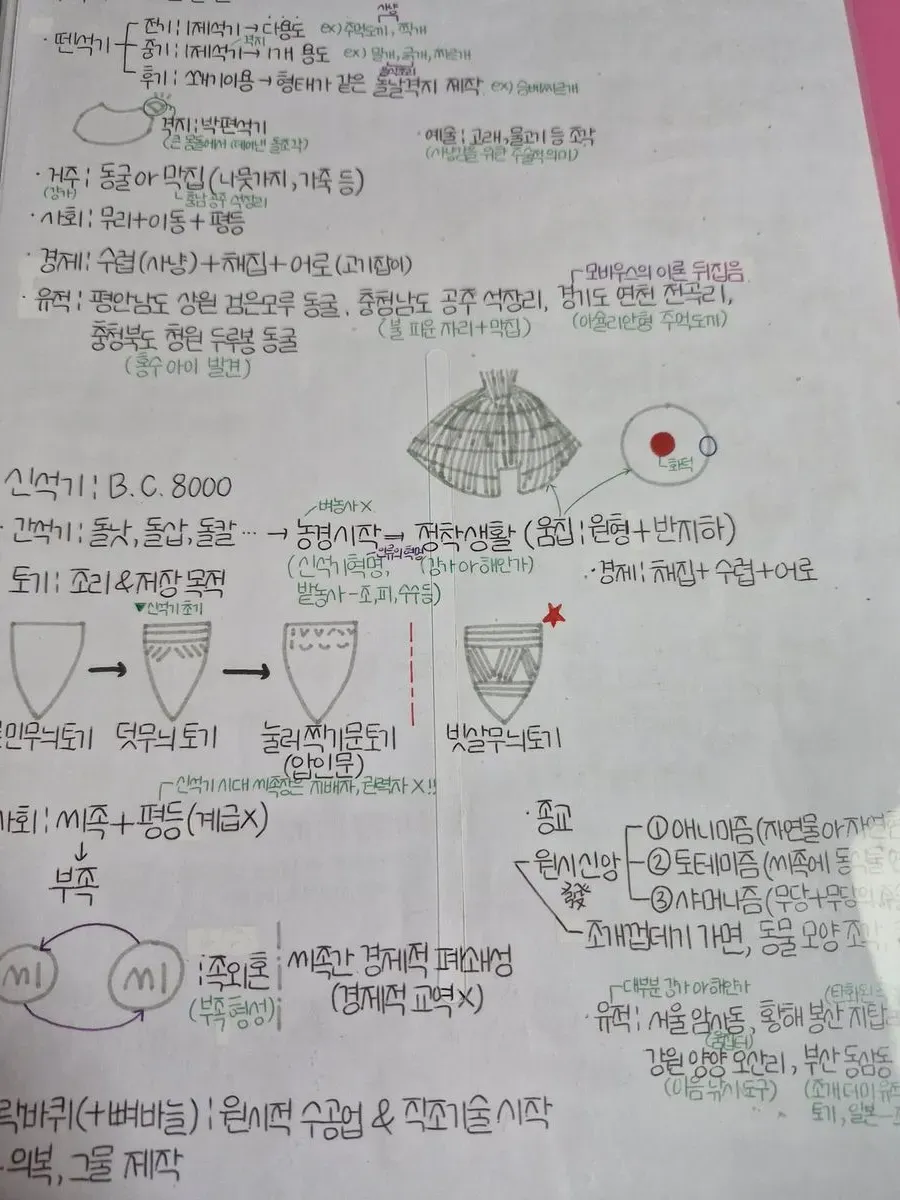 사냥
전기 : 1제석기 → 다용도 ex) 주먹도끼, 찍개
격지
· 뗀석기 중기 : 1제석기 → 1개 용도 ex) 밀개, 긁개, 찌르개
후기 : 쐐기이용 → 형태가 같은 돌날격지 제작 ex) 슴베찌르개
격지 : 박편석기
(큰 몸돌에서 떼어낸 돌조각)
· 예술 : 고래, 물고기 등 조각
(사냥감을 위한 주술적 의미)
· 거주 : 동굴 or 막집 (나뭇가지, 가죽 등)
(강가) 충남 공주 석장리
· 사회 : 무리+이동+평등
· 경제 : 수렵(사냥)+채집+어로(고기잡이)
모비우스의 이론 뒤집음
· 유적 : 평안남도 상원 검은모루 동굴, 충청남도 공주 석장리, 경기도 연천 전곡리,
(불 피운 자리+막집) (아슐리안형 주먹도끼)
충청북도 청원 두루봉 동굴
(흥수 아이 발견)
화덕
신석기 : B.C. 8000
벼농사 X
· 간석기 : 돌낫, 돌삽, 돌칼 … → 농경시작 → 정착생활 (움집 : 원형+반지하)
인류의 혁명
(신석기 혁명, (강가 or 해안가)
밭농사 - 조, 피, 수수 등)
· 경제 : 채집+수렵+어로
토기 : 조리 & 저장 목적
▼신석기 초기
민무늬토기 덧무늬 토기 눌러찍기문토기 빗살무늬토기
(압인문)
신석기 시대 씨족장은 지배자, 권력자 X!!
사회 : 씨족+평등(계급X)
↓
부족
씨 씨 : 족외혼
(부족 형성)
씨족간 경제적 폐쇄성
(경제적 교역 X)
· 종교
원시신앙
發
① 애니미즘 (자연물 or 자연
② 토테미즘 (씨족에 동식물
③ 샤머니즘 (무당+무당의
조개껍데기 가면, 동물 모양 조각,
대부분 강가 or 해안가
· 유적 : 서울 암사동, 황해 봉산 지탑
(움집터)
강원 양양 오산리, 부산 동삼동
(이음 낚시도구) (조개더미 유적
토기, 일본
락바퀴(+뼈바늘) : 원시적 수공업 & 직조기술 시작
· 의복, 그물 제작